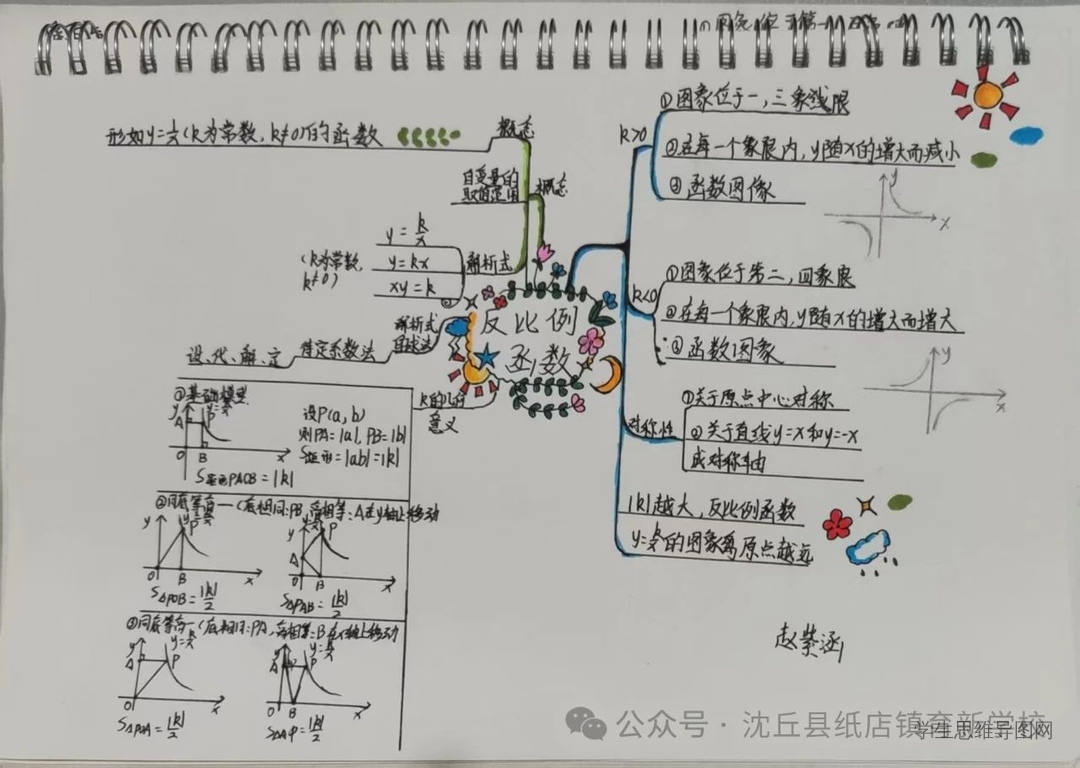 形如y=k/x(k为常数,k≠0)的函数
概念
自变量的
取值范围
概念
y=k/x
y=kx
xy=k
(k为常数,
k≠0)
解析式
解析式
设、代、解、定
待定系数法
反比例
函数
k的几何
意义
①基础模型
y=k/x
y
A
P
O
B
x
S矩形PAOB=|k|
设P(a,b)
则PA=|a|,PB=|b|
S矩形=|ab|=|k|
②同底等高一(底相同:PB,高相等:A在y轴上移动
y
P
O
B
x
S△POB=|k|/2
y
P
A
O
B
x
S△PAB=|k|/2
③同底等高一(底相同:PA,高相等:B在x轴上移动
y
y=k/x
A
P
O
x
S△POA=|k|/2
y
y=k/x
A
P
O
B
x
k>0
①图象位于一,三象线限
②在每一个象限内,y随x的增大而减小
③函数图像
y
x
k<0
①图象位于第二,四象限
②在每一个象限内,y随x的增大而增大
③函数图象
y
x
对称性
①关于原点中心对称
②关于直线y=x和y=-x
成对称轴
|k|越大,反比例函数
y=k/x的图象离原点越远
赵紫涵
公众号·沈丘县纸店镇育新学校
学生思维导图网